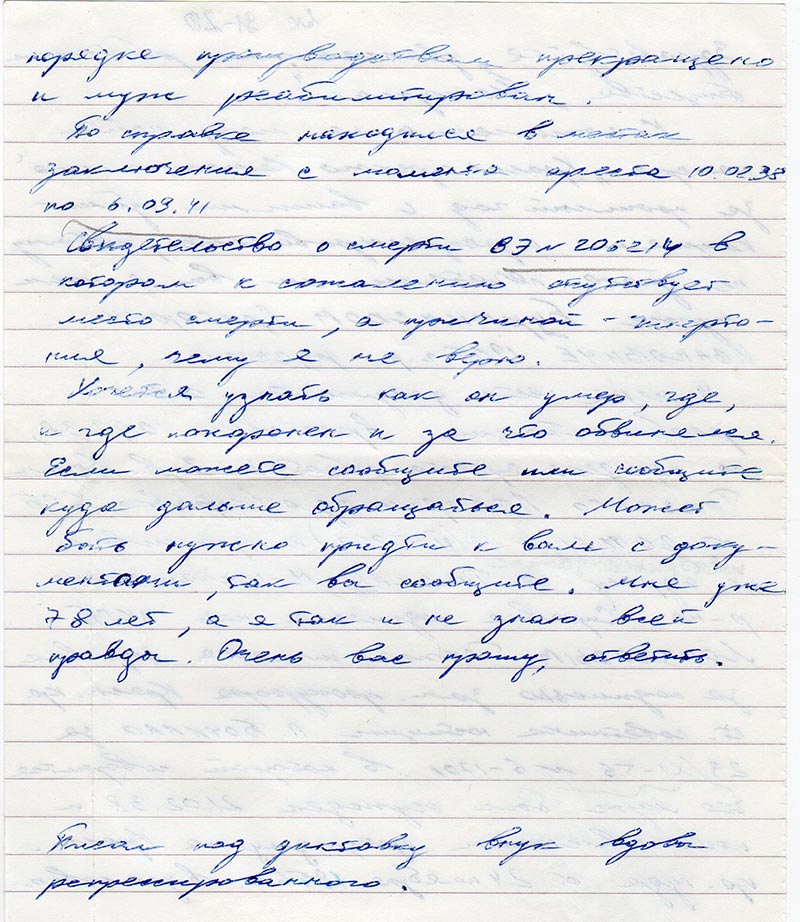 порядке производством прекращено
и муж реабилитирован.
По справке находился в местах
заключения с момента ареста 10.02.38
по 6.03.41
Свидетельство о смерти ВЭ N 205214 в
котором к сожалению отсутствует
место смерти, а причиной -
ния, чему я не верю.
Хочется узнать как он умер, где,
и где похоронен и за что обвинялся.
Если можете сообщите или сообщите
куда дальше обращаться. Может
быть нужно придти к вам с доку-
ментами, так вы сообщите. Мне уже
78 лет, а я так и не знаю всей
правды. Очень вас прошу, ответить.
Писал под диктовку внук вдовы
репрессированного.